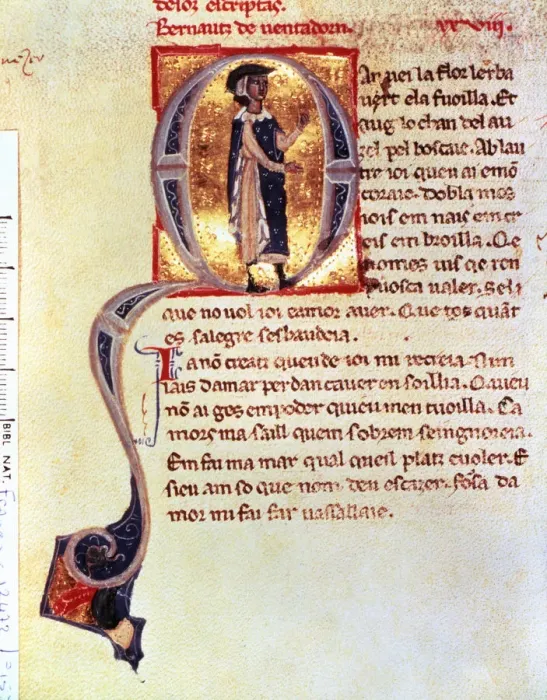 delos escriptas.
Bernautz de uentadorn. xxviii.
Qan uei la flor lerba
uert ela fuoilla. Et
aug lo chan del au
zel pel boscaie. Ab lau
tre ioi queu ai emō
coraie. Dobla mos
iois em nais em cr
eis em broilla. Qe
nomes uis qe ren
puosca ualer. Seli
que no uol ioi eamor auer. Que tot quāt
es salegre sesbaudeia.
Ia nō creatz queu de ioi mi recreia. Nim
lais damar per dan cauer en soillia. Queu
nō ai ges em poder quieu men tuoilla. Ca
mors ma saill quem sobrem seingnoreia.
Em fai ma mar qual queil platz euoler. E
sieu am so que nom deu escazer. fosa da
mor mi fai far uassalaie.
BIBL NAT.